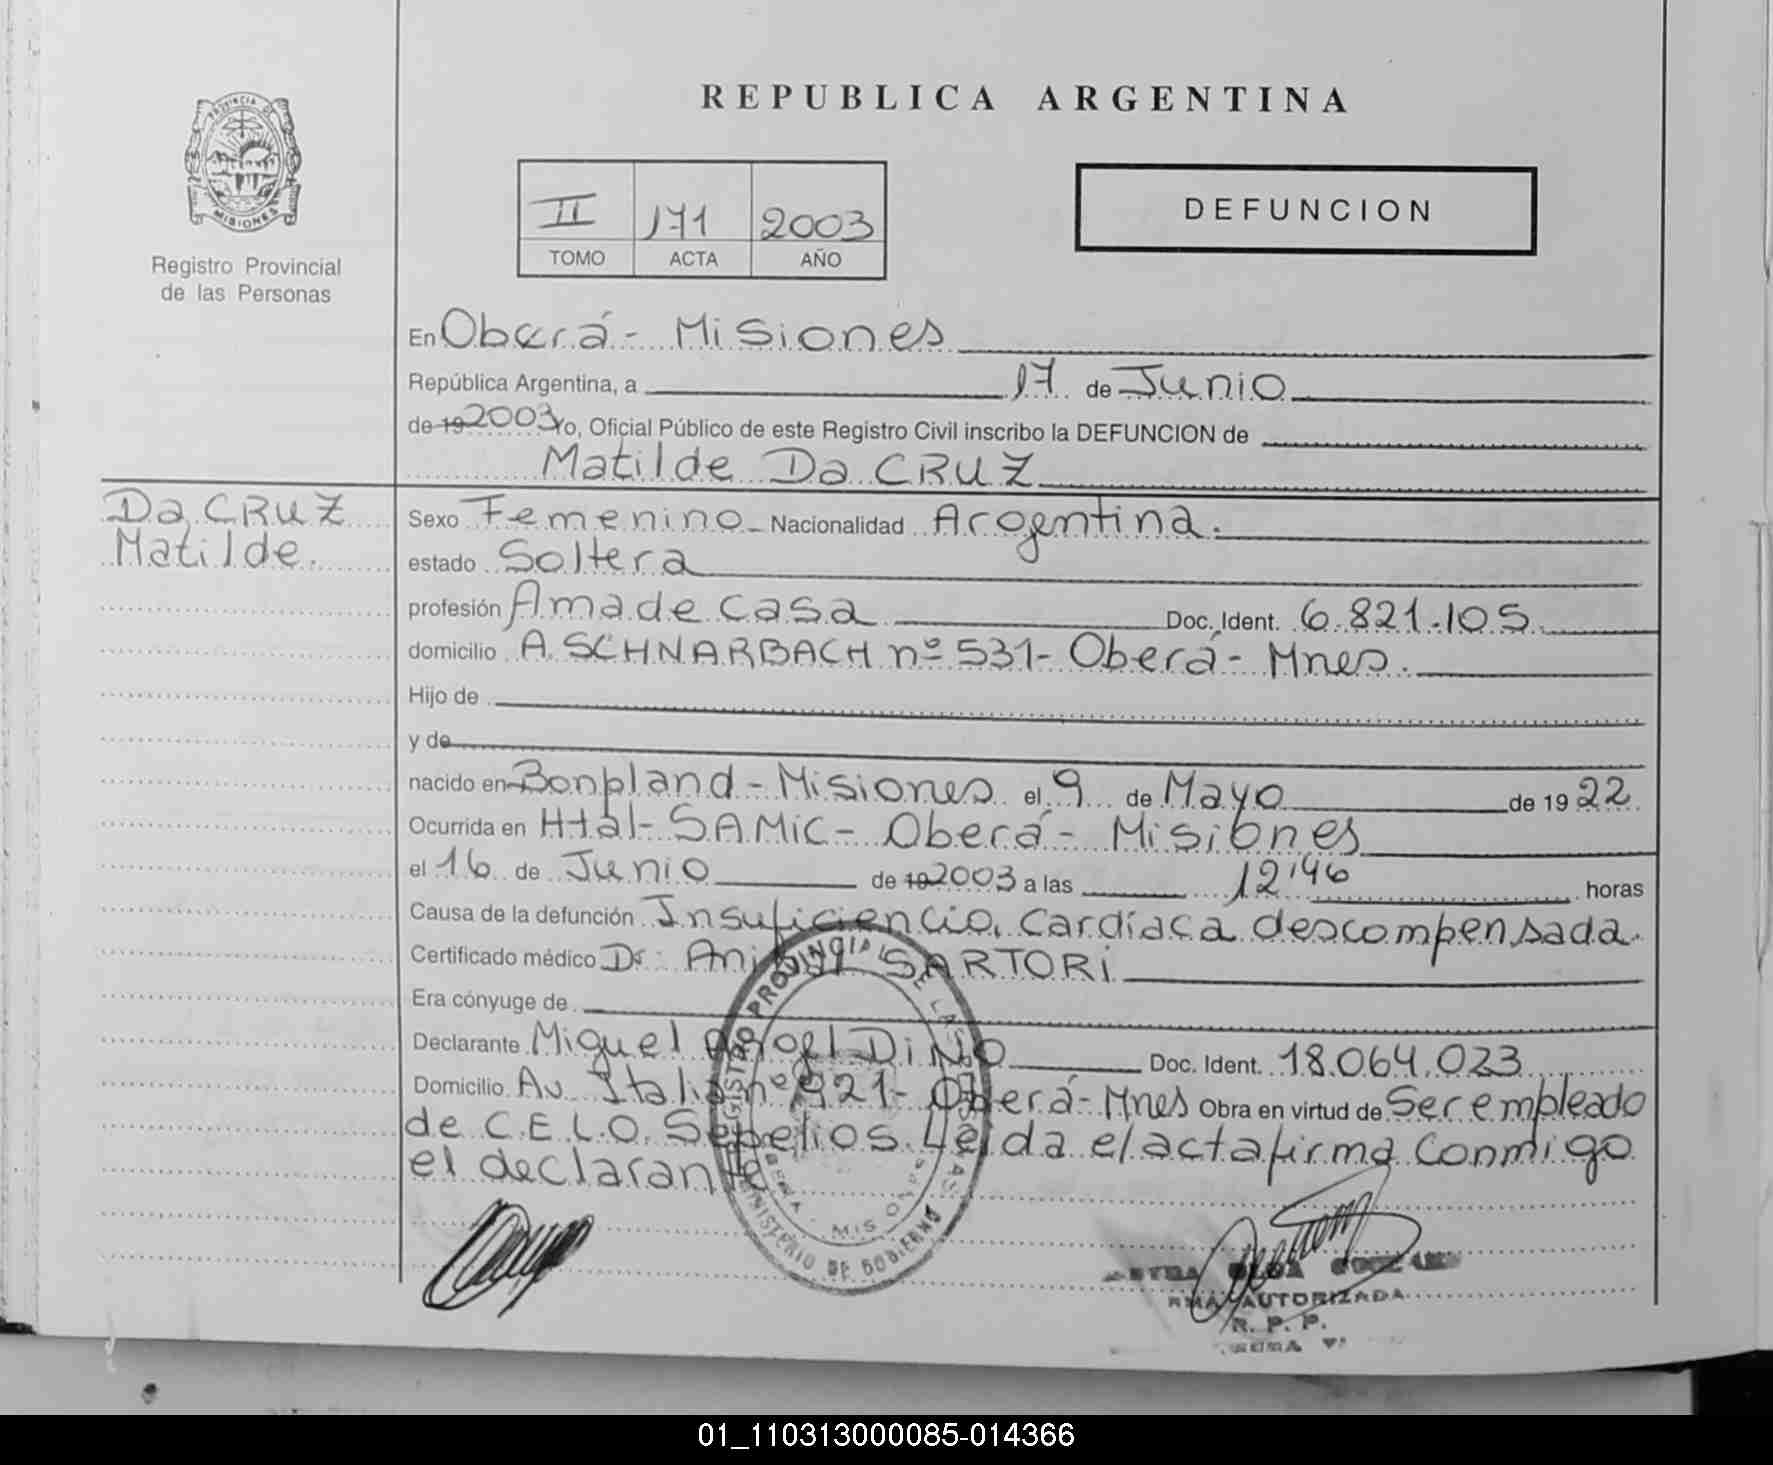 REPUBLICA ARGENTINA
PROVINCIA DE
MISIONES
Registro Provincial
de las Personas
II 171 2003
TOMO ACTA AÑO
DEFUNCION
En Oberá - Misiones
República Argentina, a 17 de Junio
de 19 2003 Yo, Oficial Público de este Registro Civil inscribo la DEFUNCION de
Matilde Da CRUZ
Da CRUZ
Matilde.
Sexo Femenino - Nacionalidad Argentina.
estado Soltera
profesión Ama de casa Doc. Ident. 6.821.105
domicilio A. SCHNARBACH nº 531 - Oberá - Mnes.
Hijo de
y de
nacido en Bonpland - Misiones el 9 de Mayo de 19 22
Ocurrida en Htal - SAMiC - Oberá - Misiones
el 16 de Junio de 19 2003 a las 12'46 horas
Causa de la defunción Insuficiencia Cardíaca descompensada.
Certificado médico Dr. Anibal SARTORi
Era cónyuge de
Declarante Miguel Angel DiNO Doc. Ident. 18.064.023
Domicilio Av. Italia nº 921 - Oberá - Mnes Obra en virtud de Ser empleado
de C.E.L.O. Sepelios. Leída el acta firma Conmigo
el declarante
REGISTRO PROVINCIAL DE LAS PERSONAS
MINISTERIO DE GOBIERNO
OBERA - MISIONES
AUTORIZADA
R. P. P.
01_110313000085-014366